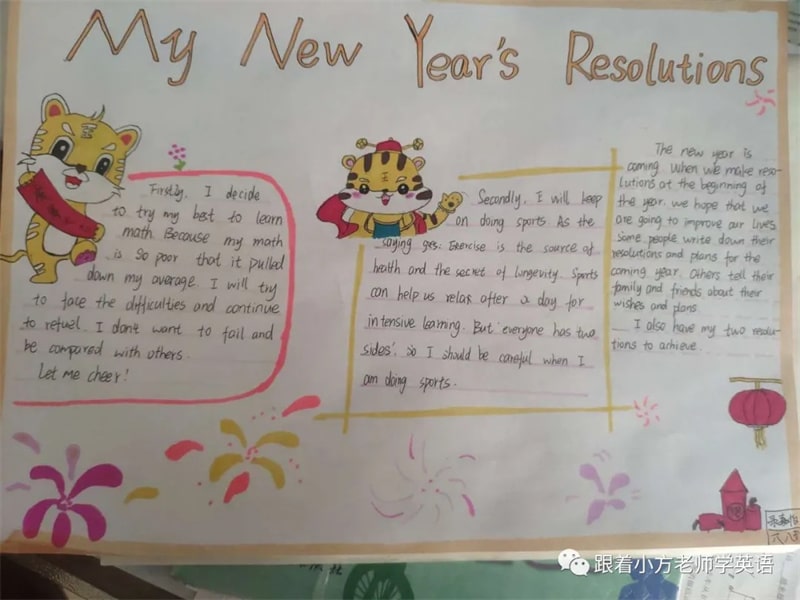 My New Year's Resolutions
Firstly, I decide
to try my best to learn
math. Because my math
is so poor that it pulled
down my average. I will try
to face the difficulties and continue
to refuel. I don't want to fail and
be compared with others.
Let me cheer!
Secondly, I will keep
on doing sports. As the
saying goes. Exercise is the source of
health and the secret of lungevity. Sports
can help us relax after a day for
intensive learning. But 'everyone has two
sides', so I should be careful when I
am doing sports.
The new year is
coming. When we make reso-
lutions at the beginning of
the year. we hope that we
are going to improve our lives.
Some people write down their
resolutions and plans for the
coming year. Others tell their
family and friends about their
wishes and plans.
I also have my two resolu-
tions to achieve.
跟着小方老师学英语